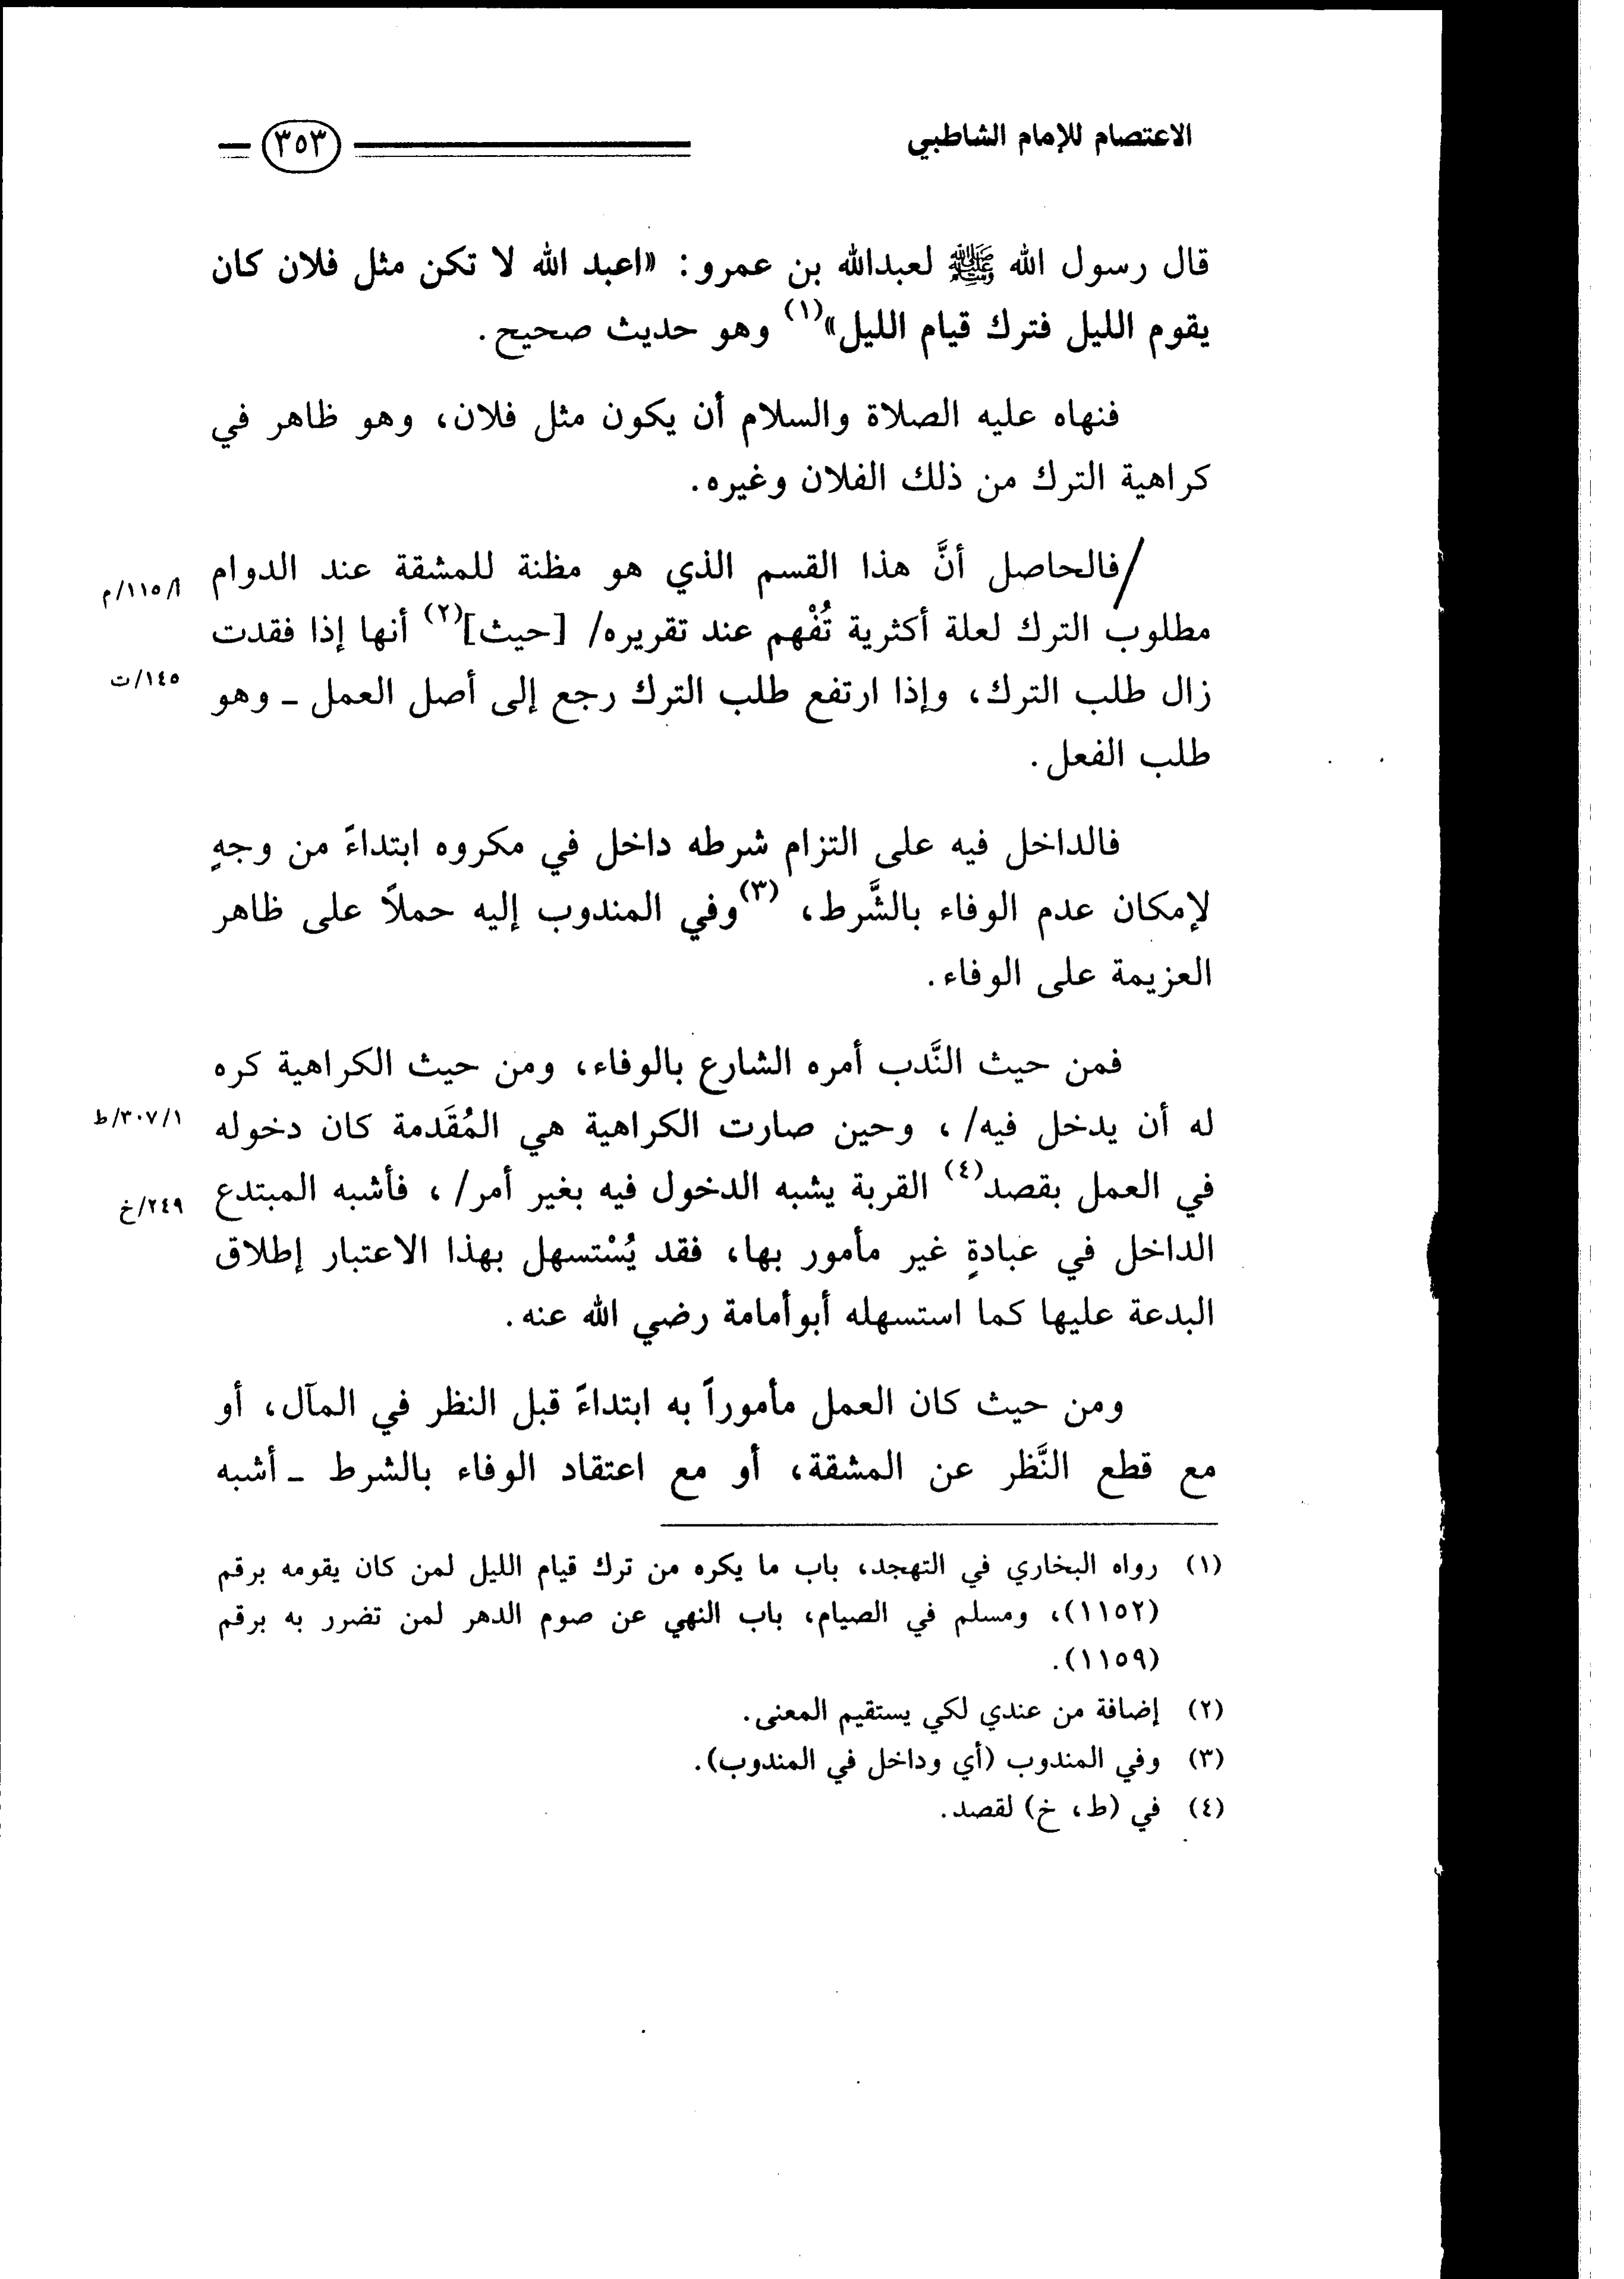 الاعتصام للإمام الشاطبي
٣٥٣
قال رسول الله ﷺ لعبدالله بن عمرو: «اعبد الله لا تكن مثل فلان كان
يقوم الليل فترك قيام الليل»(١) وهو حديث صحيح.
فنهاه عليه الصلاة والسلام أن يكون مثل فلان، وهو ظاهر في
كراهية الترك من ذلك الفلان وغيره.
/فالحاصل أنَّ هذا القسم الذي هو مظنة للمشقة عند الدوام
أ/١١٥/م
مطلوب الترك لعلة أكثرية تُفْهم عند تقريره/ [حيث](٢) أنها إذا فقدت
زال طلب الترك، وإذا ارتفع طلب الترك رجع إلى أصل العمل ـ وهو
١٤٥/ت
طلب الفعل.
فالداخل فيه على التزام شرطه داخل في مكروه ابتداءً من وجهٍ
لإمكان عدم الوفاء بالشَّرط، (٣)وفي المندوب إليه حملاً على ظاهر
العزيمة على الوفاء.
فمن حيث النَّدب أمره الشارع بالوفاء، ومن حيث الكراهية كره
له أن يدخل فيه/ ، وحين صارت الكراهية هي المُقَدمة كان دخوله
٣٠٧/١/ط
في العمل بقصد(٤) القربة يشبه الدخول فيه بغير أمر/ ، فأشبه المبتدع
٢٤٩/خ
الداخل في عبادةٍ غير مأمور بها، فقد يُسْتسهل بهذا الاعتبار إطلاق
البدعة عليها كما استسهله أبوأمامة رضي الله عنه.
ومن حيث كان العمل مأموراً به ابتداءً قبل النظر في المآل، أو
مع قطع النَّظر عن المشقة، أو مع اعتقاد الوفاء بالشرط ـ أشبه
(١) رواه البخاري في التهجد، باب ما يكره من ترك قيام الليل لمن كان يقومه برقم
(١١٥٢)، ومسلم في الصيام، باب النهي عن صوم الدهر لمن تضرر به برقم
(١١٥٩).
(٢) إضافة من عندي لكي يستقيم المعنى.
(٣) وفي المندوب (أي وداخل في المندوب).
(٤) في (ط، خ) لقصد.